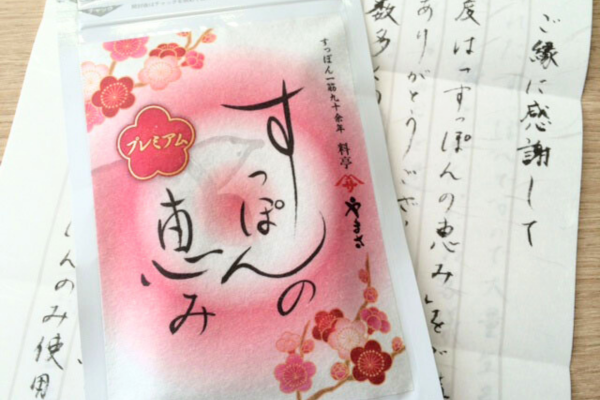 すっぽん一筋九十余年
料亭
サ
やまさ
プレミアム
すっぽんの
恵み
ご縁に感謝して
度は「すっぽんの恵み」を
ありがとうござ
数多
のみ使用